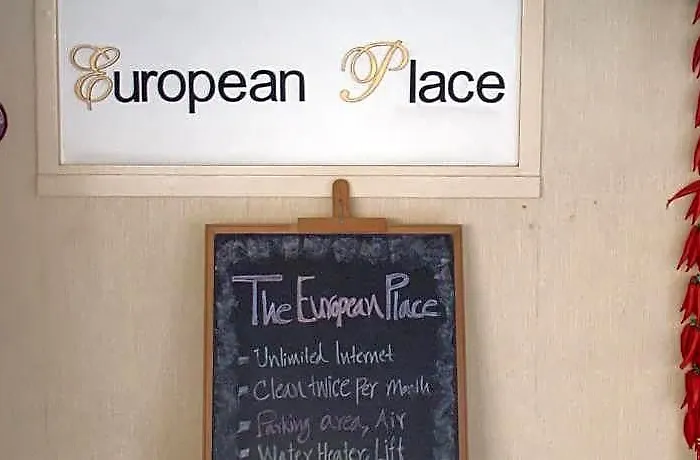 European Place
The European Place
- Unlimited Internet
- Clean twice per Month
- Parking area, Air
- Water Heater, Lift